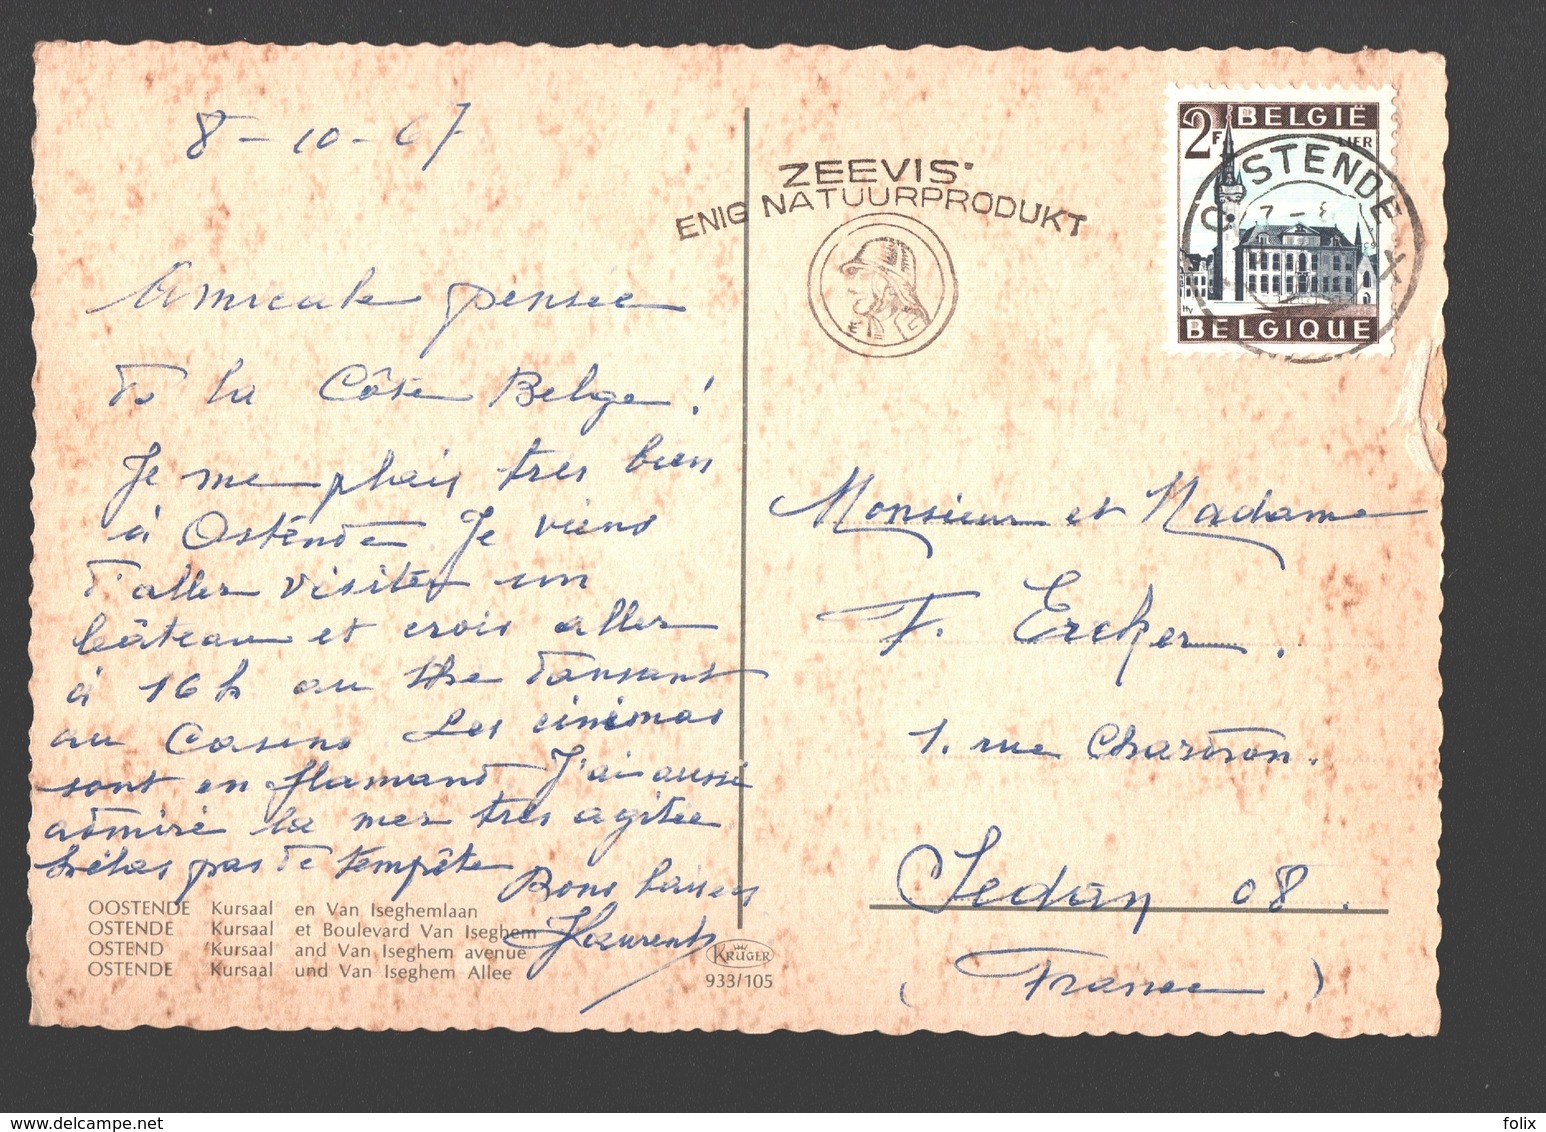 8-10-67
Amicale pensée
de la Côte Belge!
Je me plais très bien
à Ostende Je viens
d'aller visiter un
bâteau et crois aller
à 16 h au the dansant
au Casino Les cinémas
sont en flamand J'ai aussi
admiré la mer très agitée
hélas pas de tempête
Bons baisers
Laurent
OOSTENDE Kursaal en Van Iseghemlaan
OSTENDE Kursaal et Boulevard Van Iseghem
OSTEND Kursaal and Van Iseghem avenue
OSTENDE Kursaal und Van Iseghem Allee
KRÜGER
933/105
ZEEVIS
ENIG NATUURPRODUKT
2F BELGIË
LIER
BELGIQUE
OOSTENDE
Monsieur et Madame
F. Ercker.
1. rue Chardron.
Sedan 08.
(France)
folix